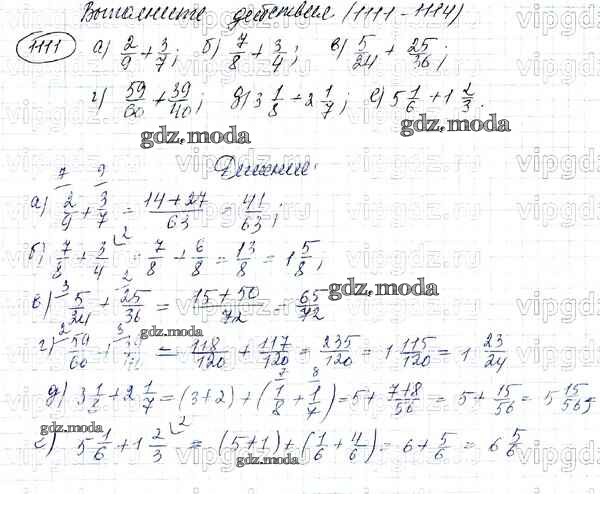 Выполните действия (1111-1114)
1111 а) 2/9 + 3/7; б) 7/8 + 3/4; в) 5/24 + 25/36;
г) 59/60 + 39/40; д) 3 1/8 + 2 1/7; е) 5 1/6 + 1 2/3.
gdz.moda gdz.moda
Решение:
7 9
а) 2/9 + 3/7 = (14+27)/63 = 41/63;
б) 7/8 + 3/4 (2 = 7/8 + 6/8 = 13/8 = 1 5/8;
gdz.moda
3 2
в) 5/24 + 25/36 = (15+50)/72 = 65/72
gdz.moda
2 3
г) 59/60 + 39/40 = 118/120 + 117/120 = 235/120 = 1 115/120 = 1 23/24
7 8
д) 3 1/8 + 2 1/7 = (3+2) + (1/8 + 1/7) = 5 + (7+8)/56 = 5 + 15/56 = 5 15/56;
gdz.moda
е) 5 1/6 + 1 2/3 (2 = (5+1) + (1/6 + 4/6) = 6 + 5/6 = 6 5/6
gdz.moda gdz.moda
vipgdz